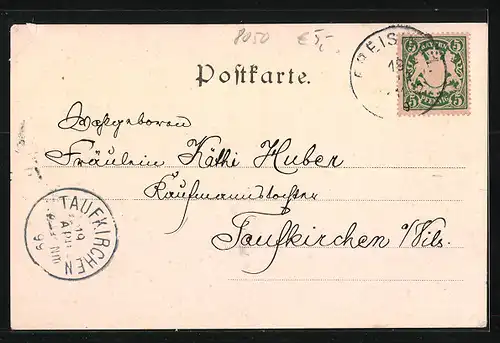 8050 €5,-
FREIS
19
5 BAYERN 5
5 PFENNIG 5
Postkarte.
Wohlgeboren
Fräulein Käthi Huber
Kaufmannstochter
Taufkirchen a/Vils.
TAUFKIRCHEN
19
APR
Nm
99